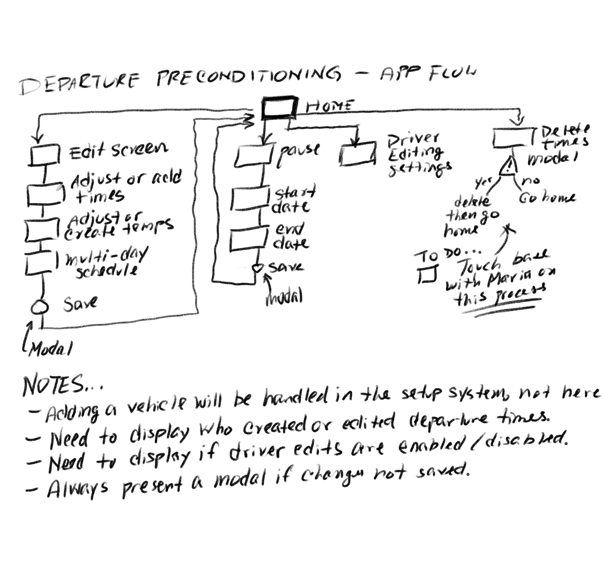 DEPARTURE PRECONDITIONING - APP FLOW
HOME
Edit screen
Adjust or add
times
Adjust or
create temps
multi-day
schedule
Save
Modal
pause
start
date
end
date
save
modal
Driver
Editing
settings
Delete
times
modal
yes
no
delete
then go
home
Go home
TO DO...
Touch base
with Maria on
this process
NOTES...
- Adding a vehicle will be handled in the setup system, not here
- Need to display who created or edited departure times.
- Need to display if driver edits are enabled/disabled.
- Always present a modal if changes not saved.